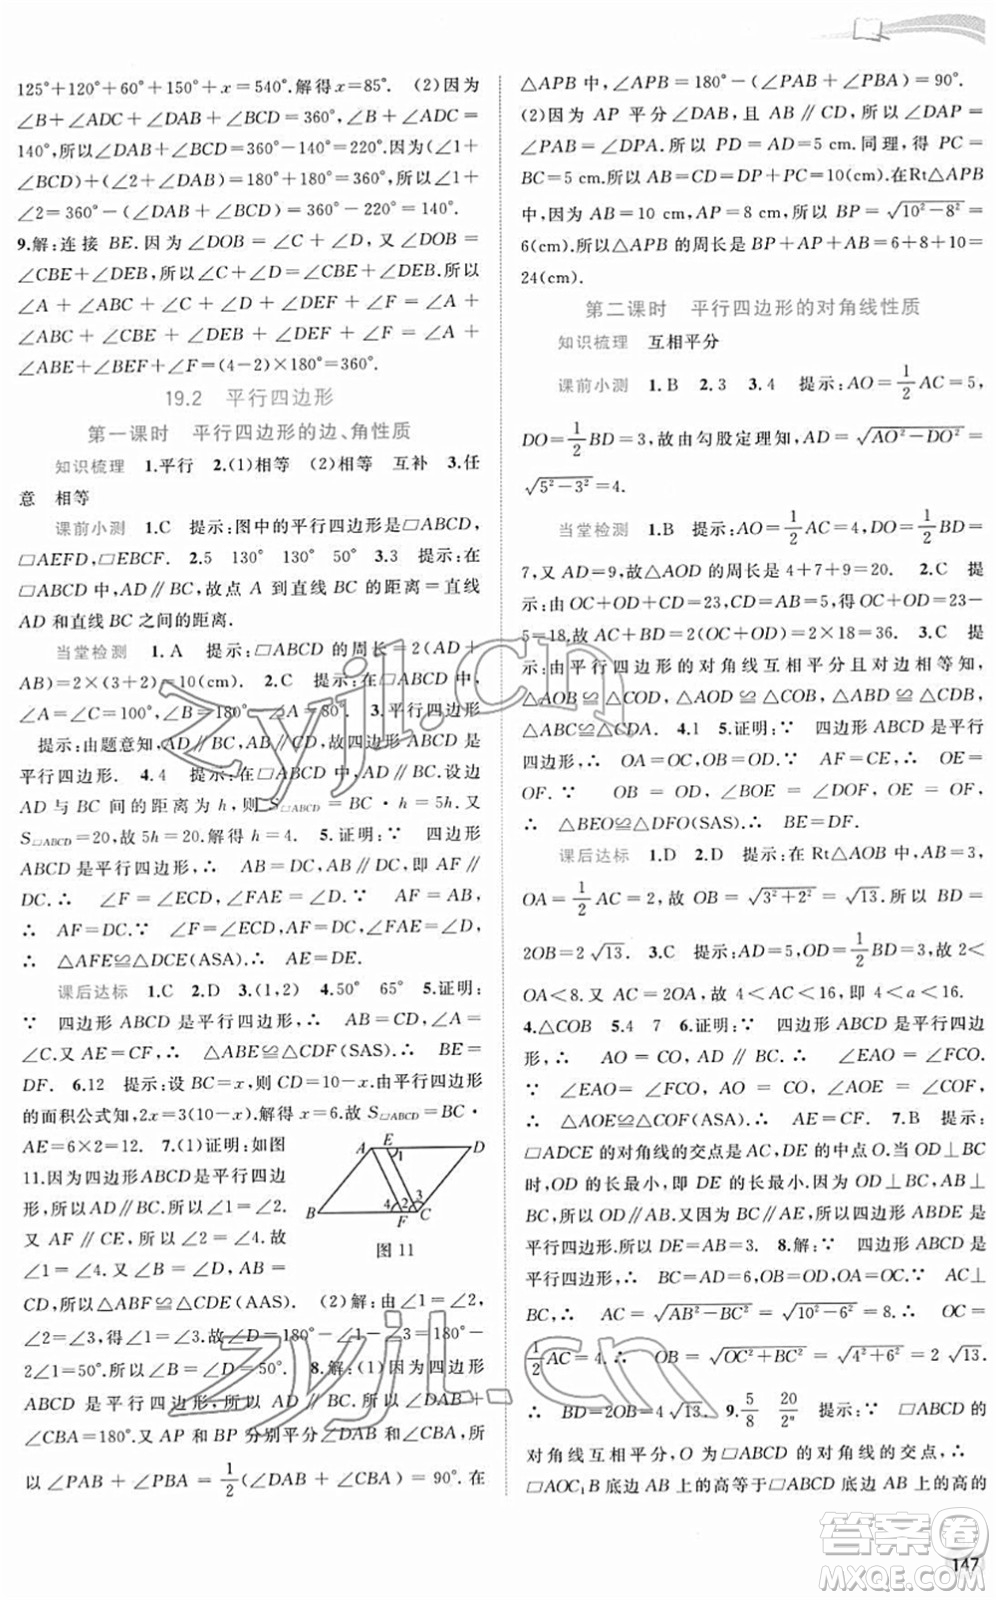 125°+120°+60°+150°+x=540°.解得x=85°. (2)因为
∠B+∠ADC+∠DAB+∠BCD=360°,∠B+∠ADC=
140°,所以∠DAB+∠BCD=360°-140°=220°.因为∠1+
∠BCD+∠2+∠DAB)=180°+180°=360°,所以∠1+
∠2=360°-(∠DAB+∠BCD)=360°-220°=140°.
9.解:连接 BE.因为∠DOB=∠C+∠D,又∠DOB=
∠CBE+∠DEB,所以∠C+∠D=∠CBE+∠DEB.所以
∠A+∠ABC+∠C+∠D+∠DEF+∠F=∠A+
∠ABC+∠CBE+∠DEB+∠DEF+∠F=∠A+
∠ABE+∠BEF+∠F=(4-2)×180°=360°.
19.2 平行四边形
第一课时 平行四边形的边、角性质
知识梳理 1.平行 2.(1)相等 (2)相等 互补 3.任
意 相等
课前小测 1.C 提示:图中的平行四边形是▱ABCD,
▱AEFD,▱EBCF. 2.5 130° 130° 50° 3.3 提示:在
▱ABCD中,AD∥BC,故点 A 到直线 BC 的距离=直线
AD 和直线 BC 之间的距离.
当堂检测 1.A 提示:▱ABCD 的周长=2(AD+
AB)=2×(3+2)=10(cm). 2.C 提示:▱ABCD 中,
∠A=∠C=100°,∠B=180°-∠A=80°. 3.平行四边形
提示:由题意知,AD∥BC,AB∥DC,故四边形 ABCD 是
平行四边形. 4.4 提示:在▱ABCD 中,AD∥BC.设边
AD 与 BC 间的距离为 h,则 S▱ABCD=BC·h=5h.又
S▱ABCD=20,故 5h=20.解得 h=4. 5.证明:∵ 四边形
ABCD 是平行四边形,∴ AB=DC,AB∥DC,即 AF∥
DC.∴ ∠F=∠ECD,∠FAE=∠D.又 AF=AB,
∴ AF=DC.∵ ∠F=∠ECD,∠FAE=∠D,
∴ △AFE≌△DCE(ASA).∴ AE=DE.
课后达标 1.C 2.D 3.(1,2) 4.50° 65° 5.证明:
∵ 四边形 ABCD 是平行四边形,∴ AB=CD,∠A=
∠C.又 AE=CF,∴ △ABE≌△CDF(SAS).∴ BE=
DF. 6.12 提示:设 BC=x,则 CD=10-x.由平行四边形
的面积公式知,2x=3(10-x).解得 x=6.故 S▱ABCD=BC·
AE=6×2=12. 7.(1)证明:如图
11.因为四边形 ABCD 是平行四边
形,所以 AD∥BC.所以∠1=∠4.
又 AF∥CE,所以∠2=∠4.故
∠1=∠2.又∠B=∠D,AB=
CD,所以△ABF≌△CDE(AAS). (2)解:由∠1=∠2,
∠2=∠3,得∠1=∠3.故∠D=180°-∠1-∠3=180°-
2∠1=50°.所以∠B=∠D=50°. 8.解:(1)因为四边形
ABCD 是平行四边形,所以 AD∥BC.所以∠DAB+
∠CBA=180°.又 AP 和 BP 分别平分∠DAB 和∠CBA,所
以∠PAB+∠PBA=1/2(∠DAB+∠CBA)=90°.在
A E D 1 B 4 2 3 F C
图 11
△APB 中,∠APB=180°-(∠PAB+∠PBA)=90°.
(2)因为 AP 平分∠DAB,且 AB∥CD,所以∠DAP=
∠PAB=∠DPA.所以 PD=AD=5 cm.同理,得 PC=
BC=5 cm.所以 AB=CD=DP+PC=10(cm).在Rt△APB
中,AB=10 cm,AP=8 cm,所以 BP=√(10²-8²)=
6(cm).所以△APB 的周长是 BP+AP+AB=6+8+10=
24(cm).
第二课时 平行四边形的对角线性质
知识梳理 互相平分
课前小测 1.B 2.3 3.4 提示:AO=1/2AC=5,
DO=1/2BD=3,故由勾股定理知,AD=√(AO²-DO²)=
√(5²-3²)=4.
当堂检测 1.B 提示:AO=1/2AC=4,DO=1/2BD=
7,又 AD=9,故△AOD 的周长是 4+7+9=20. 2.C 提
示:由 OC+OD+CD=23,CD=AB=5,得 OC+OD=23-
5=18.故 AC+BD=2(OC+OD)=2×18=36. 3.C 提
示:由平行四边形的对角线互相平分且对边相等知,
△AOB≌△COD,△AOD≌△COB,△ABD≌△CDB,
△ABC≌△CDA. 4.1 5.证明:∵ 四边形 ABCD 是平行
四边形,∴ OA=OC,OB=OD.又 AE=CF,∴ OE=
OF.∵ OB=OD,∠BOE=∠DOF,OE=OF,
∴ △BEO≌△DFO(SAS).∴ BE=DF.
课后达标 1.D 2.D 提示:在 Rt△AOB 中,AB=3,
OA=1/2AC=2,故 OB=√(3²+2²)=√13.所以 BD=
2OB=2√13. 3.C 提示:AD=5,OD=1/2BD=3,故 2<
OA<8.又 AC=2OA,故 4<AC<16,即 4<a<16.
4.△COB 5.4 7 6.证明:∵ 四边形 ABCD 是平行四边
形,∴ AO=CO,AD∥BC.∴ ∠EAO=∠FCO.
∵ ∠EAO=∠FCO,AO=CO,∠AOE=∠COF,
∴ △AOE≌△COF(ASA).∴ AE=CF. 7.B 提示:
▱ADCE 的对角线的交点是 AC,DE 的中点 O.当 OD⊥BC
时,OD 的长最小,即 DE 的长最小.因为 OD⊥BC,AB⊥
BC,所以 OD∥AB.又 BC∥AE,所以四边形 ABDE 是
平行四边形.所以 DE=AB=3. 8.解:∵ 四边形 ABCD 是
平行四边形,∴ BC=AD=6,OB=OD,OA=OC.∵ AC⊥
BC,∴ AC=√(AB²-BC²)=√(10²-6²)=8.∴ OC=
1/2AC=4.∴ OB=√(OC²+BC²)=√(4²+6²)=2√13.
∴ BD=2OB=4√13. 9.5/8 20/2ⁿ 提示:∵ ▱ABCD 的
对角线互相平分,O 为▱ABCD 的对角线的交点,∴
▱AOC₁B 底边 AB 上的高等于▱ABCD 底边 AB 上的高的
147
zyjl.cn
zyjl.cn
答案圈
MXQE.COM